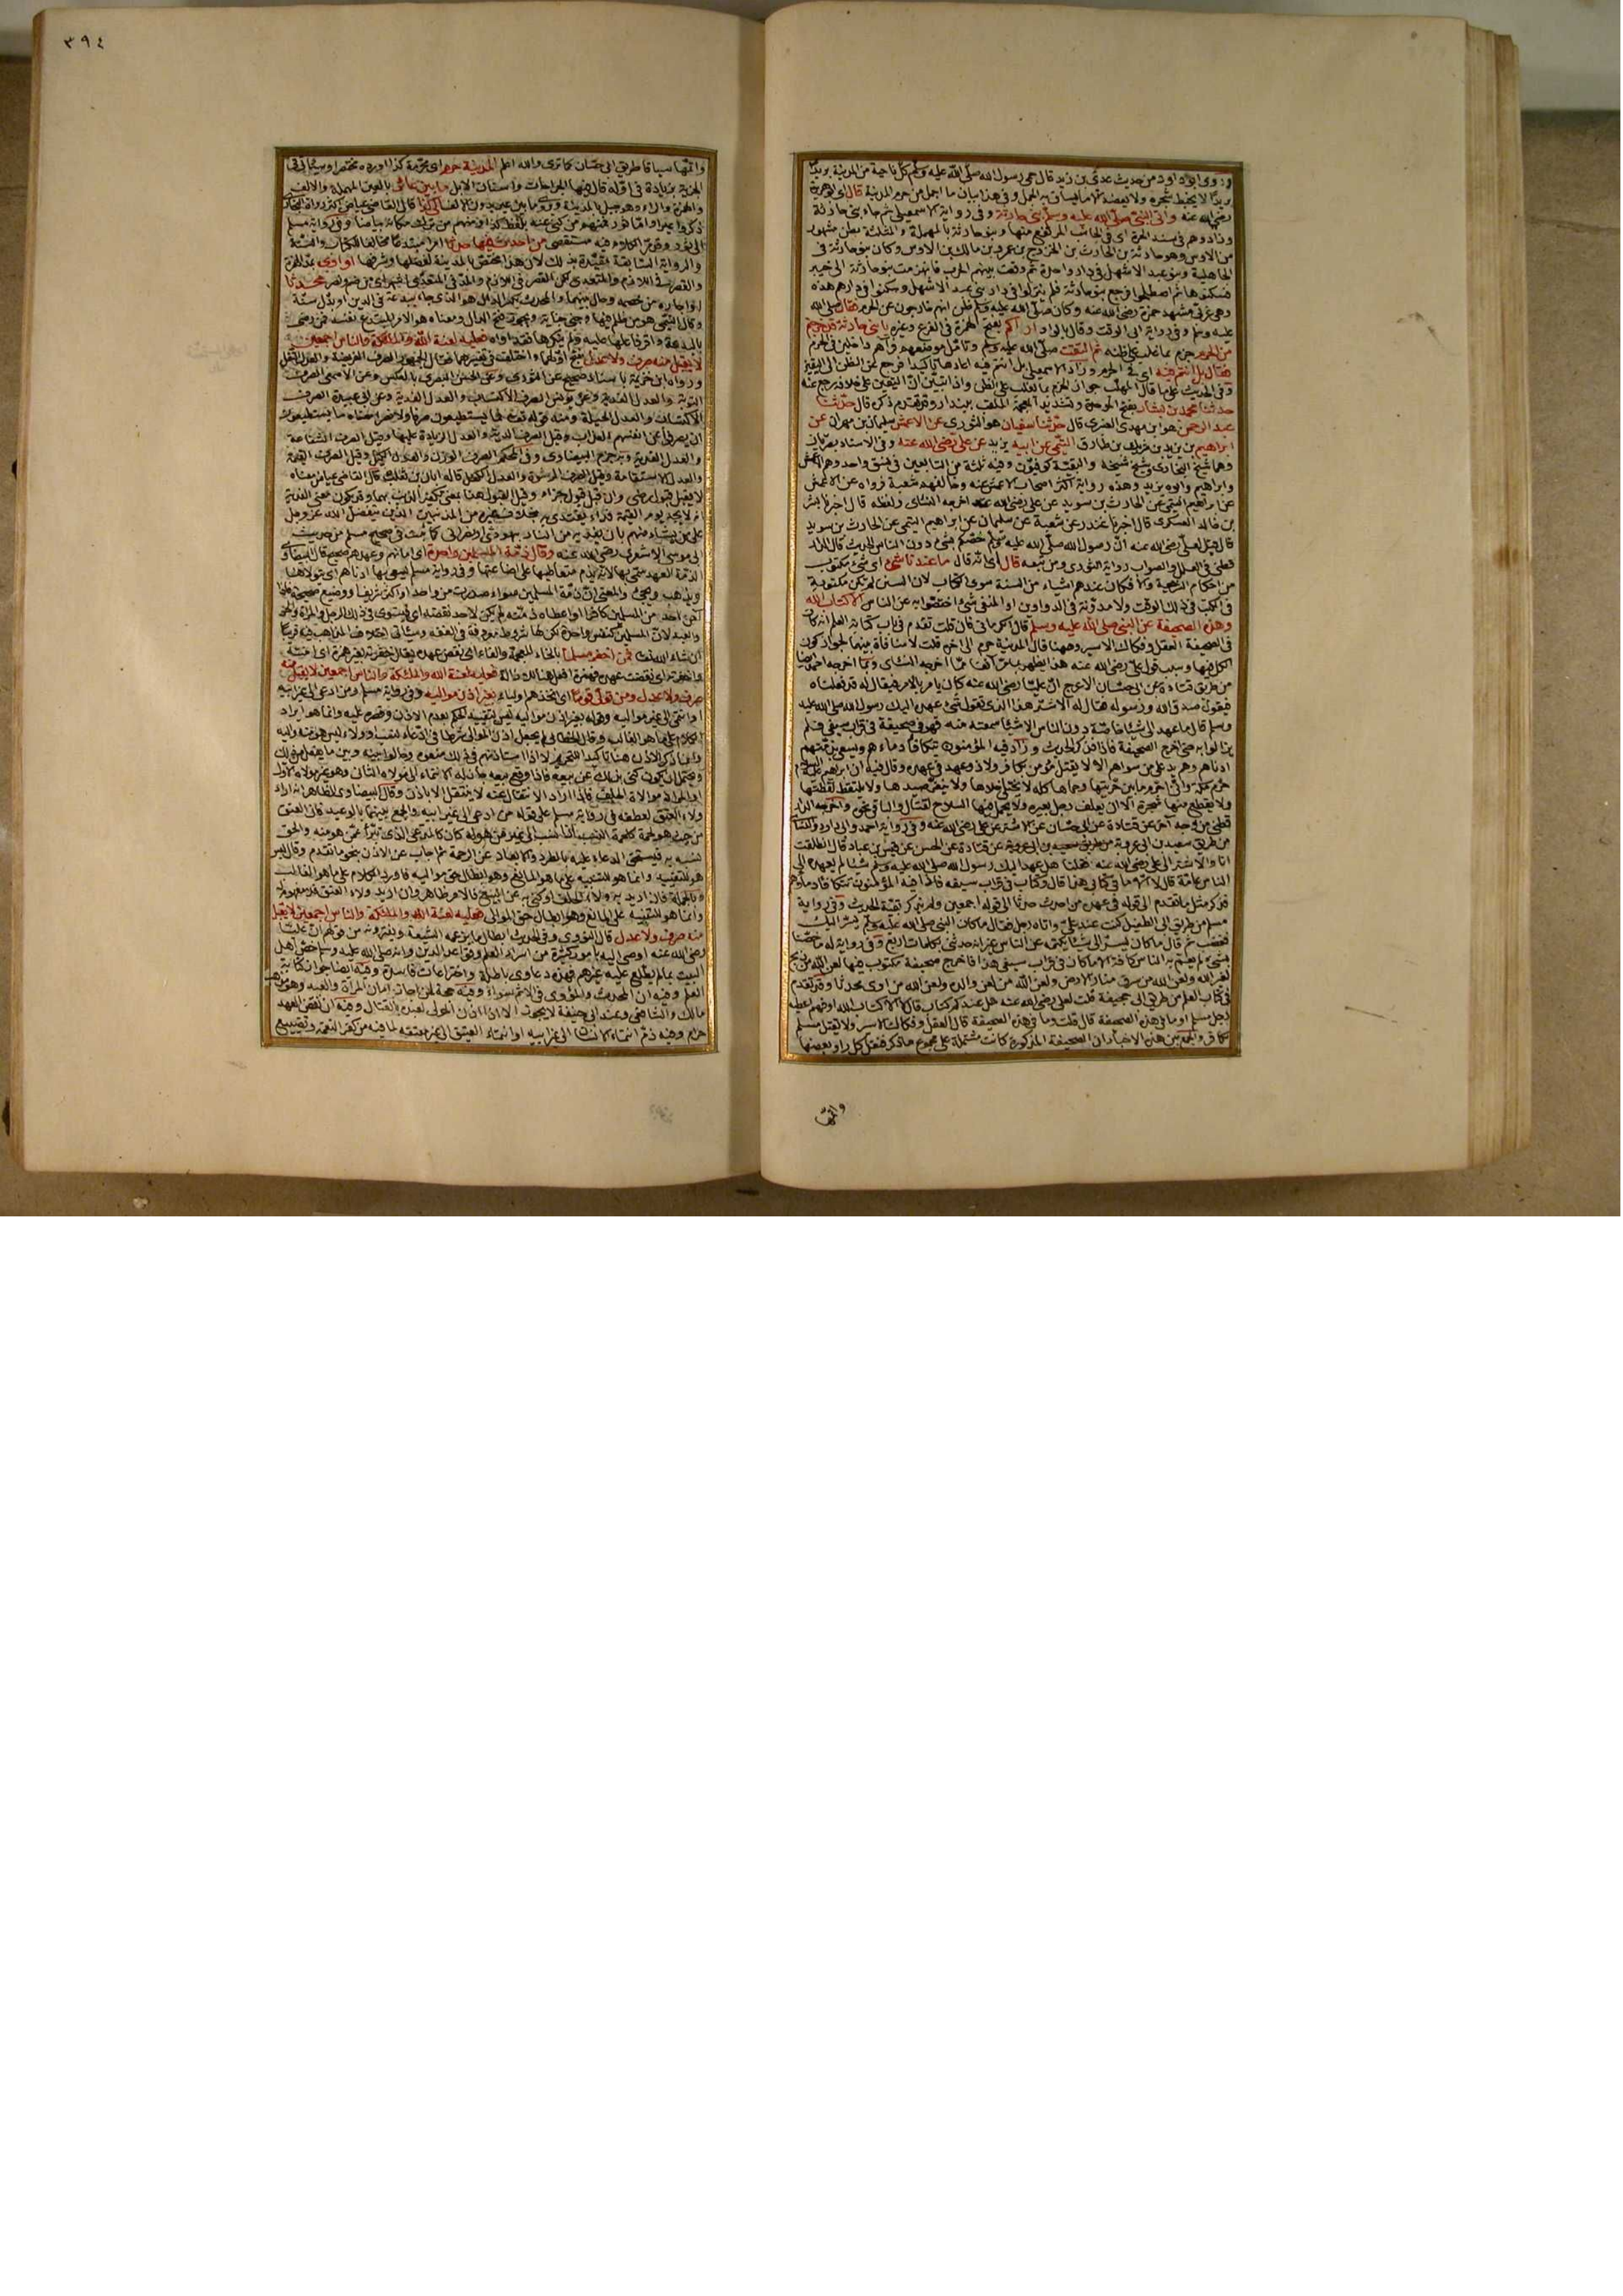 وروى ابو داود من حديث عدى بن زيد قال حمى رسول الله صلى الله عليه وسلم كل ناحية من المدينة بريدا
بريدا لا يخبط شجره ولا يعضد الا ما يساق به الجمل وفى هذا بيان ما اجمل من حرم المدينة قال اى ابو هريرة
رضى الله عنه واتى النبى صلى الله عليه وسلم بنى حارثة وفى رواية الاسمعيلى ثم جاء بنى حارثة
وزاد وهم فى سند الحرة اى فى الجانب المرتفع منها وبنو حارثة بالمهملة والمثلثة بطن مشهور
من الاوس وهو حارثة بن الحارث بن الخزرج بن عمرو بن مالك بن الاوس وكان بنو حارثة فى
الجاهلية وبنو عبد الاشهل فى دار واحدة ثم وقعت بينهم الحرب فانهزمت بنو حارثة الى خيبر
فسكنوها ثم اصطلحوا فرجع بنو حارثة فلم ينزلوا فى دار بنى عبد الاشهل وسكنوا فى دارهم هذه
وهى غربى مشهد حمزة رضى الله عنه وكان صلى الله عليه وسلم ظن انهم خارجون عن الحرم فقال صلى الله
عليه وسلم وفى رواية ابى الوقت وقال بالواو اراكم بفتح الهمزة فى الفرع وغيره يا بنى حارثة قد خرجتم
من الحرم جزم بما غلب على ظنه ثم التفت صلى الله عليه وسلم وتأمل موضعهم فرآهم داخلين فى الحرم
فقال بل انتم فيه اى فى الحرم وزاد الاسمعيلى بل انتم فيه اعادها تأكيدا فرجع عن الظن الى اليقين
وفى الحديث على ما قال المهلب جواز الجزم بما يغلب على الظن واذا تبين ان اليقين على خلافه رجع عنه
حدثنا محمد بن بشار بفتح الموحدة وتشديد المعجمة الملقب ببندار وقد تقدم ذكره قال حدثنا
عبد الرحمن هو ابن مهدى العنبرى قال حدثنا سفيان هو الثورى عن الاعمش سليمان بن مهران عن
ابراهيم بن يزيد بن شريك بن طارق التيمى عن ابيه يزيد عن على رضى الله عنه وفى الاسناد بصريان
وهما شيخ البخارى وشيخ شيخه والبقية كوفيون وفيه ثلثة من التابعين فى نسق واحد وهم الاعمش
وابراهيم وابوه يزيد وهذه رواية اكثر اصحاب الاعمش عنه وخالفهم شعبة فرواه عن الاعمش
عن ابراهيم التيمى عن الحارث بن سويد عن على رضى الله عنه اخرجه النسائى ولفظه قال اخبرنا بشر
بن خالد العسكرى قال اخبرنا غندر عن شعبة عن سليمان عن ابراهيم التيمى عن الحارث بن سويد
قال قيل لعلى رضى الله عنه ان رسول الله صلى الله عليه وسلم خصكم بشئ دون الناس الحديث قال الدار
قطنى فى العلل والصواب رواية الثورى ومن تبعه قال اى انه قال ما عندنا شئ اى شئ مكتوب
من احكام الشريعة والا فكان عندهم اشياء من السنة سوى الكتاب لان السنن لم تكن مكتوبة
فى الكتب فى ذلك الوقت ولا مدونة فى الدواوين او المنفى شئ اختصوا به عن الناس الا كتاب الله
وهذه الصحيفة عن النبى صلى الله عليه وسلم قال الكرمانى فان قلت تقدم فى باب كتابة العلم انه كان
فى الصحيفة العقل وفكاك الاسير وههنا قال المدينة حرم الى اخره قلت لا منافاة بينهما لجواز كون
الكل فيها وسبب قول على رضى الله عنه هذا يظهر بما اخرجه احمد
من طريق قتادة عن ابى حسان الاعرج ان عليا رضى الله عنه كان يأمر بالامر فيقال له قد فعلناه
فيقول صدق الله ورسوله فقال له الاشتر هذا الذى تقول شئ عهده اليك رسول الله صلى الله عليه
وسلم قال ما عهد الى شيئا خاصة دون الناس الا شيئا سمعته منه فهو فى صحيفة فى قراب سيفى فلم
يزالوا به حتى اخرج الصحيفة فاذا فيها فذكر الحديث وزاد فيه المؤمنون تتكافأ دماءهم ويسعى بذمتهم
ادناهم وهم يد على من سواهم الا لا يقتل مؤمن بكافر ولا ذو عهد فى عهده وقال فيه ان ابراهيم عليه السلام
حرم مكة وانى احرم ما بين حرتيها وحماها كله لا يختلى خلاها ولا ينفر صيدها ولا يلتقط لقطتها
ولا يقطع منها شجرة الا ان يعلف رجل بعيره ولا يحمل فيها السلاح لقتال والباقى نحوه واخرجه الدار
قطنى من وجه آخر عن قتادة عن ابى حسان عن الاشتر عن على رضى الله عنه وفى رواية احمد وابى داود والنسائى
من طريق سعيد بن ابى عروبة عن قتادة عن الحسن عن قيس بن عباد قال انطلقت
انا والاشتر الى على رضى الله عنه فقلنا هل عهد اليك رسول الله صلى الله عليه وسلم شيئا لم يعهده الى
الناس عامة قال لا الا ما فى كتابى هذا قال وكتاب فى قراب سيفه فاذا فيه المؤمنون تتكافأ دماؤهم
فذكر مثل ما تقدم الى قوله فى عهده من احدث حدثا الى قوله اجمعين ولم يذكر بقية الحديث وفى رواية
مسلم من طريق ابى الطفيل كنت عند على واتاه رجل فقال ما كان النبى صلى الله عليه وسلم يسر اليك
فغضب ثم قال ما كان يسر الى شيئا يكتمه عن الناس غير انه حدثنى بكلمات اربع وفى رواية له ما خصنا
بشئ لم يعم به الناس كافة الا ما كان فى قراب سيفى هذا فاخرج صحيفة مكتوب فيها لعن الله من ذبح
لغير الله ولعن الله من سرق منار الارض ولعن الله من لعن والده ولعن الله من آوى محدثا وقد تقدم
فى كتاب العلم من طريق ابى جحيفة قلت لعلى رضى الله عنه هل عندكم كتاب قال لا الا كتاب الله او فهم اعطيه
رجل مسلم او ما فى هذه الصحيفة قال قلت وما فى هذه الصحيفة قال العقل وفكاك الاسير ولا يقتل مسلم
بكافر والجمع بين هذه الاخبار ان الصحيفة المذكورة كانت مشتملة على مجموع ما ذكر فنقل كل راو بعضها
واتمها
٣٩٤
واتمها سياقا طريق ابى حسان كما ترى والله اعلم المدينة حرم اى محرمة كذا اورده مختصرا وسيأتى فى
الجزية بزيادة فى اوله قال فيها الجراحات واسنان الابل ما بين عائر بالعين المهملة والالف
والهمزة والراء وهو جبل بالمدينة الى كذا قال القاضى عياض اكثر رواة البخارى
ذكروا عيرا واما ثور فمنهم من كنى عنه بلفظ كذا ومنهم من ترك مكانه بياضا وفى رواية مسلم
الى ثور وقد مر الكلام فيه مستقصى من احدث فيها حدثا اى امرا مبتدعا مخالفا للكتاب والسنة
والرواية السابقة مقيدة بذلك لان هذا مختص بالمدينة لفضلها وشرفها او آوى بمد الهمزة
والقصر فى اللازم والمتعدى لكن القصر فى اللازم والمد فى المتعدى اشهر محدثا
وقال التيمى
بالبدعة واقر فاعلها عليه ولم ينكرها فقد آواه فعليه لعنة الله والملائكة والناس اجمعين
لا يقبل منه صرف ولا عدل بفتح اولهما واختلف فى تفسيرهما فقال الجمهور الصرف الفريضة والعدل النفل
ورواه ابن خزيمة باسناد صحيح عن الثورى وعن الحسن البصرى بالعكس وعن الاصمعى الصرف
التوبة والعدل الفدية وعن يونس الصرف الاكتساب والعدل الفدية وعن ابى عبيدة الصرف
الاكتساب والعدل الحيلة ومنه قوله تعالى فما يستطيعون صرفا ولا نصرا معناه ما يستطيعون
ان يصرفوا عن انفسهم العذاب وقيل الصرف الدية والعدل الزيادة عليها وقيل الصرف الشفاعة
والعدل الفدية وبه جزم البيضاوى وفى المحكم الصرف الوزن والعدل الكيل وقيل الصرف القيمة
والعدل الاستقامة وقيل الصرف الرشوة والعدل الكفيل قاله ابان بن ثعلب قال القاضى عياض معناه
لا يقبل قبول رضى وان قبل قبول جزاء وقيل القبول هنا بمعنى تكفير الذنب بهما وقد يكون معنى الفدية
انه لا يجد يوم القيمة فداء يفتدى به بخلاف غيره من المذنبين الذين يتفضل الله عز وجل
على من يشاء منهم بان يفديه من النار بيهودى او نصرانى كما ثبت فى صحيح مسلم من حديث
ابى موسى الاشعرى رضى الله عنه وقال ذمة المسلمين واحدة اى امانهم وعهدهم صحيح قال البيضاوى
الذمة العهد سمى بها لانه يذم متعاطيها على اضاعتها وفى رواية مسلم يسعى بها ادناهم اى يتولاها
ويذهب ويجئ والمعنى ان ذمة المسلمين سواء صدرت من واحد او اكثر شريف او وضيع
احد من المسلمين كافرا واعطاه ذمته لم يكن لاحد نقضه اى يستوى فى ذلك الرجل والمرأة والحر
والعبد لان المسلمين كنفس واحدة لكن لها شروط معروفة فى الفقه وسيأتى اختلاف المذاهب فيه قريبا
ان شاء الله تعالى فمن اخفر مسلما بالخاء المعجمة والفاء اى نقض عهده يقال خفرته بغير همزة اى امنته
واخفرته اى نقضت عهده فعليه لعنة الله والملئكة والناس اجمعين لا يقبل منه
صرف ولا عدل ومن تولى قوما اى اتخذهم اولياء بغير اذن مواليه وفى رواية مسلم ومن ادعى الى غير ابيه
او انتمى الى غير مواليه وقوله بغير اذن مواليه ليس لتقييد الحكم بعدم الاذن وقصره عليه وانما هو ايراد
الكلام على ما هو الغالب وقال الخطابى لم يجعل اذن الموالى شرطا فى ادعاء نسب او ولاء ليس هو منه واليه
وانما ذكر الاذن هنا تأكيدا للتحريم لانه اذا استأذنهم فى ذلك منعوه وحالوا بينه وبين ما يفعل من ذلك
ويحتمل ان يكون كنى بذلك عن بيعه فاذا وقع بيعه جاز له الانتماء الى مولاه الثانى وهو غير مولاه الاول
او المراد موالاة الحلف فاذا اراد الانتقال عنه لا ينتقل الا باذن وقال البيضاوى الظاهر انه اراد
ولاء العتق لعطفه فى رواية مسلم على قوله من ادعى الى غير ابيه والجمع بينهما بالوعيد فان العتق
من حيث هو لحمة كلحمة النسب فاذا نسب الى غير من هو له كان كالدعى الذى تبرأ عمن هو منه والحق
نفسه بغيره فيستحق الدعاء عليه بالطرد والابعاد عن الرحمة ثم اجاب عن الاذن بنحو ما تقدم وقال ليس
هو للتقييد وانما هو للتنبيه على ما هو المانع وهو ابطال حق مواليه فاورد الكلام على ما هو الغالب
وبالجملة فان اريد به ولاء الحلف او كنى به عن البيع فالامر ظاهر وان اريد ولاء العتق فلا مفهوم له
وانما هو للتنبيه على المانع وهو ابطال حق الموالى فعليه لعنة الله والملئكة والناس اجمعين لا يقبل
منه صرف ولا عدل قال النووى وفى الحديث ابطال ما يزعمه الشيعة ويفترونه من قولهم ان عليا
رضى الله عنه اوصى اليه بامور كثيرة من اسرار العلم وقواعد الدين وانه صلى الله عليه وسلم خص اهل
البيت بما لم يطلع عليه غيرهم فهذه دعاوى باطلة واختراعات فاسدة وفيه ايضا جواز كتابة
العلم وفيه ان المحدث والمؤوى فى الاثم سواء وفيه حجة لمن اجاز امان المرأة والعبد وهو مذهب
مالك والشافعى وعند ابى حنيفة لا يجوز الا اذا اذن المولى لعبده بالقتال وفيه ان نقض العهد
حرام وفيه ذم انتماء الانسان الى غير ابيه او انتماء العتيق الى غير معتقه لما فيه من كفر النعمة وتضييع